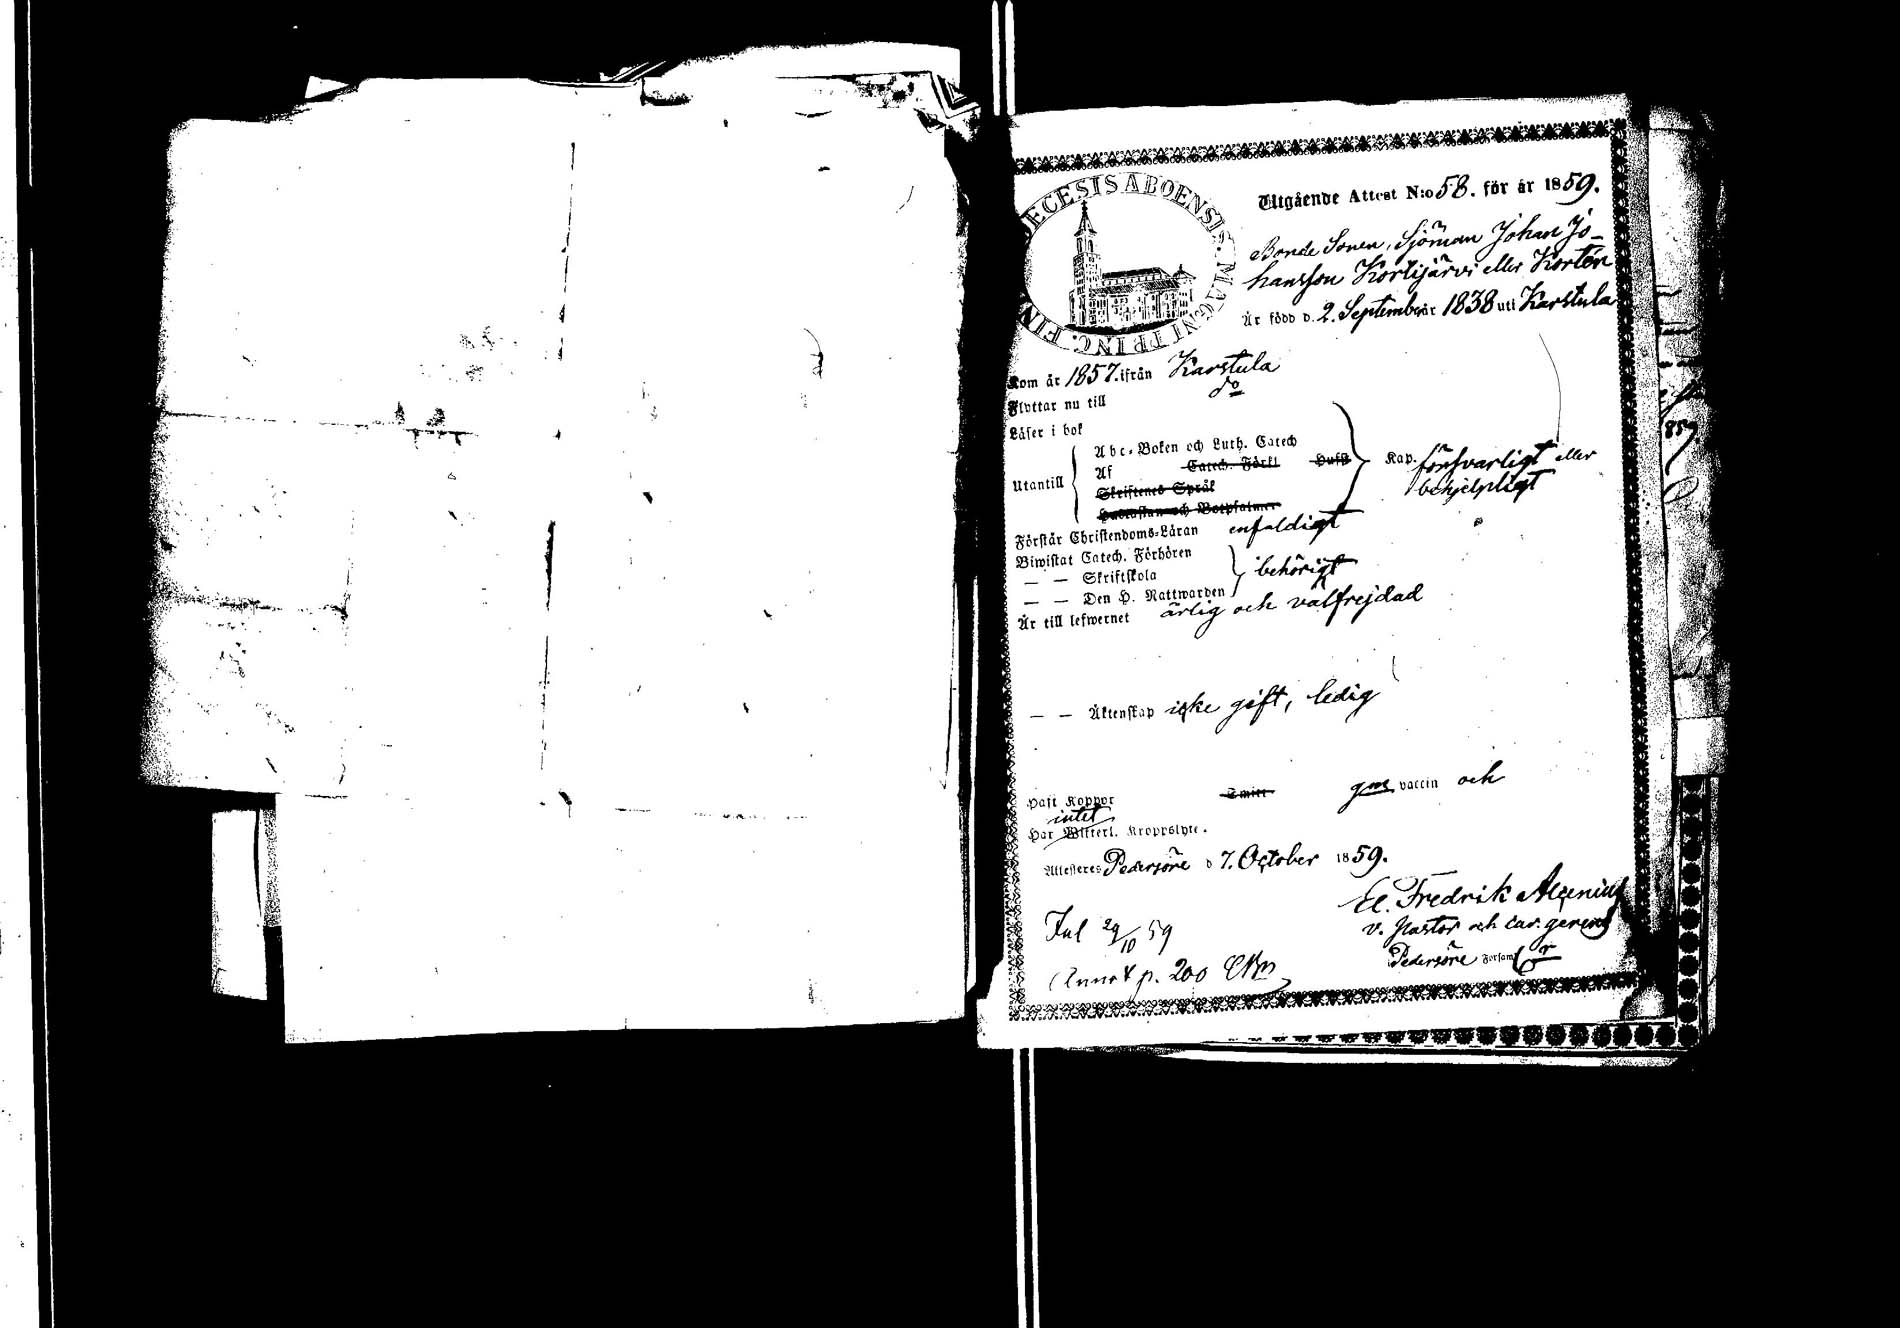 DIECESIS ABOENSIS. MAGNI PRINC. FIN
Utgående Attest N:o 58. för år 1859.
Bonde Sonen, Sjöman Johan Jo-
hansson Kortijärvi eller Kortén
Är född d. 2. September år 1838 uti Karstula
Kom år 1857. ifrån Karstula
Flyttar nu till do
Läser i bok
Utantill
Abc-Boken och Luth. Catech
Af Catech. Förkl Hufst Kap. försvarligt eller
Skriftenes Språk behjelpligt
Hustaflan och Botpsalmer
Förstår Christendoms-Läran enfaldigt
Biwistat Catech. Förhören
— — Skriftskola behörigt
— — Den H. Nattwarden
Är till lefwernet ärlig och välfrejdad
— — Äktenskap icke gift, ledig
Haft Koppor genom vaccin och
intet
Har Witterl. Kroppslyte.
Attesteres Pedersöre d 7. October 1859.
Fredrik
v. Pastor och
Pedersöre Forsaml
Jul 29/10 59
Annot p. 200
859